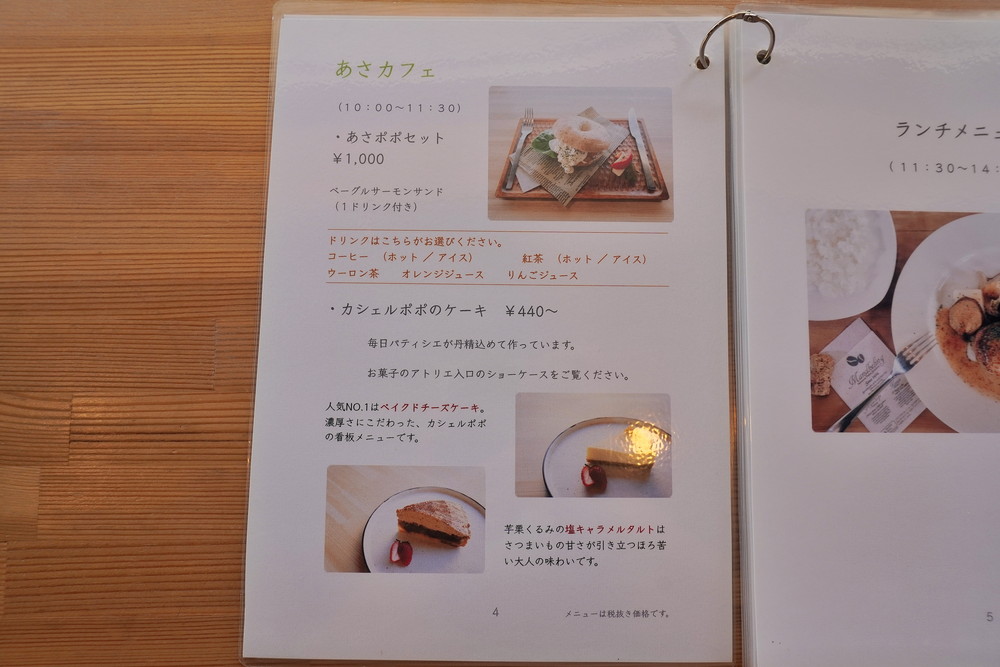 あさカフェ
(10:00〜11:30)
・あさポポセット
￥1,000
ベーグルサーモンサンド
(1ドリンク付き)
ドリンクはこちらがお選びください。
コーヒー (ホット／アイス) 紅茶 (ホット／アイス)
ウーロン茶 オレンジジュース りんごジュース
・カシェルポポのケーキ ￥440〜
毎日パティシエが丹精込めて作っています。
お菓子のアトリエ入口のショーケースをご覧ください。
人気NO.1はベイクドチーズケーキ。
濃厚さにこだわった、カシェルポポ
の看板メニューです。
芋栗くるみの塩キャラメルタルトは
さつまいもの甘さが引き立つほろ苦
い大人の味わいです。
4
メニューは税抜き価格です。
ランチメニュ
(11:30〜14:
5